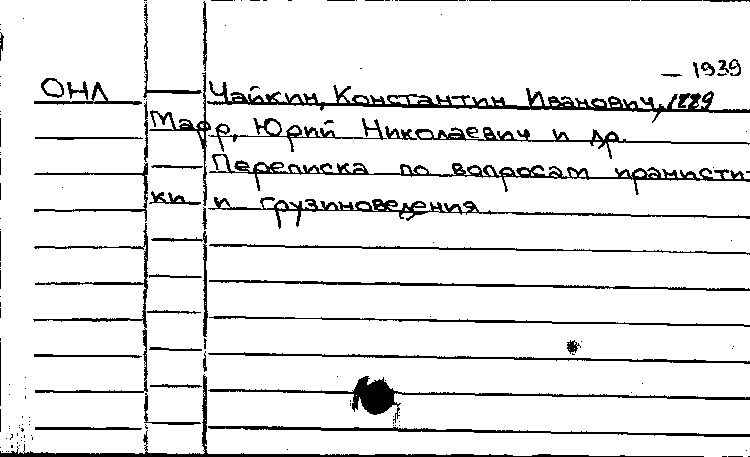 — 1939
ОНЛ
Чайкин, Константин Иванович, 1889
Марр, Юрий Николаевич и др.
Переписка по вопросам иранисти-
ки и грузиноведения